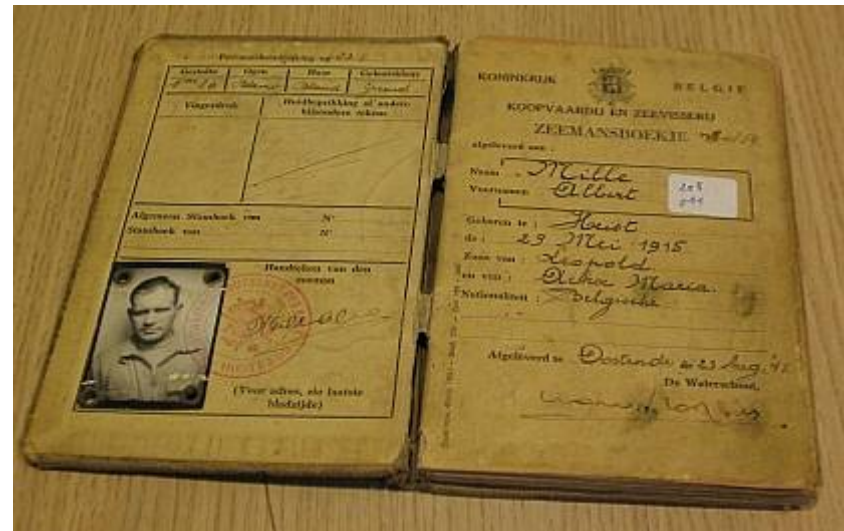 Persoonsbeschrijving
Gestalte Ogen Haar Gelaatskleur
Blauw Blond Gezond
Vingerafdruk Handbeprikking of andere
bijzondere tekens
Algemeen Stamboek van N'
Stamboek van N'
Handteken van den
zeeman
(Voor adres, zie laatste
bladzijde)
KONINKRIJK BELGIE
KOOPVAARDIJ EN ZEEVISSERIJ
ZEEMANSBOEKJE
afgeleverd aan :
Naam : Mille
Voornamen Albert
Geboren te : Heist
de : 29 Mei 1915
Zoon van : Leopold
en van : Maria
Nationaliteit : Belgische
Afgeleverd te Oostende de 23 Aug.
De Waterschout,